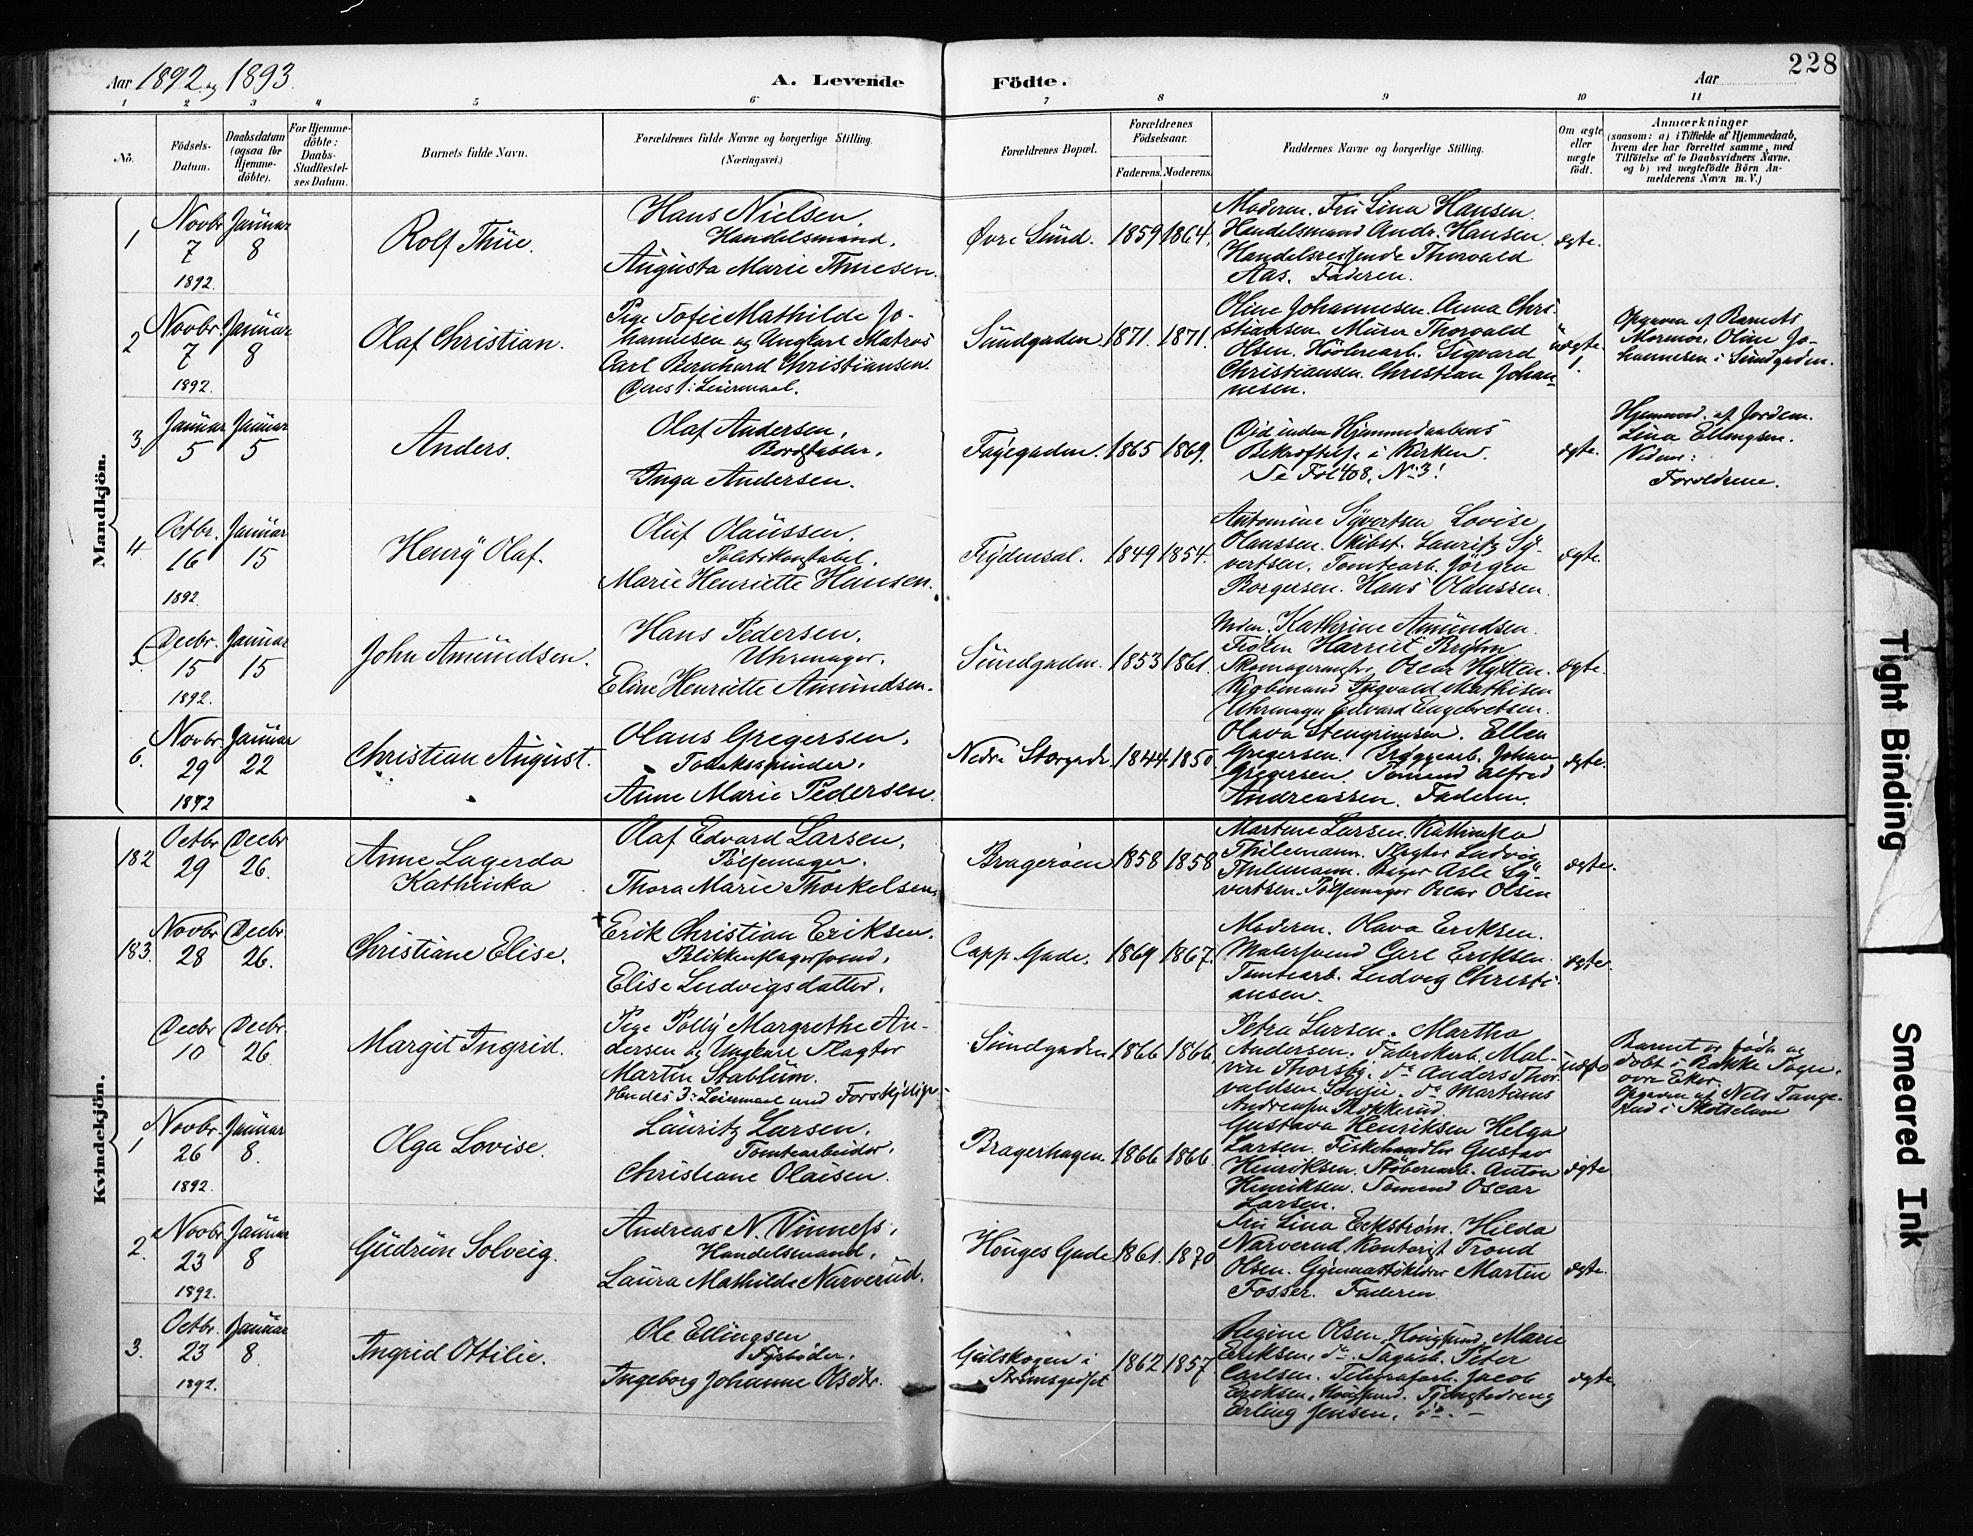 Aar 1892 og 1893.
A. Levende
Födte.
Aar
228
1 2 3 4 5 6 7 8 9 10 11
No.
Födsels-Datum.
Daabsdatum (ogsaa for Hjemme-döbte).
For Hjemme-döbte: Daabs-Stadfæstel-ses Datum.
Barnets fulde Navn.
Forældrenes fulde Navne og borgerlige Stilling. (Næringsvei.)
Forældrenes Bopæl.
Forældrenes Födselsaar.
Faderens. Moderens.
Faddernes Navne og borgerlige Stilling.
Om ægte eller uægte födt.
Anmærkninger
(saasom: a) i Tilfælde af Hjemmedaab, hvem der har forrettet samme, med Tilföielse af to Daabsvidners Navne, og b) ved uægtefödte Börn An-melderens Navn m. V.)
Mandkjön.
1
Novbr 7 1892.
Januar 8
Rolf Thue.
Hans Nielsen,
Handelsmand,
Augusta Marie Thuesen.
Øvre Sund.
1859 1864.
Moderen. Fru Lina Hansen.
Handelsmand Andr. Hansen.
Handelsreisende Thorvald
Aas. Faderen.
ægte.
2
Novbr. 7 1892.
Januar 8
Olaf Christian.
Pige Sofie Mathilde Jo-
hannesen og Ungkarl Matros
Carl Bernhard Christiansen.
Deres 1ste Leiermaal.
Sundgaden
1871. 1871.
Oline Johannesen. Anna Chri-
stiansen. Murer Thorvald
Olsen. Høvlearb. Sigvard
Christiansen. Christian Johan-
nesen.
uægte.
Opgiven af Barnets
Mormor, Oline Jo-
hannesen i Sundgaden.
3
Januar 5
Januar 5
Anders.
Olaf Andersen,
Bordstabler,
Inga Andersen.
Fayegaden.
1865 1869.
Død inden Hjemmedaabens
Bekræftelse i Kirken.
Se Fol 408, No 3!
ægte.
Hjemmed. af Jordem.
Lina Ellingsen.
Vidner:
Forældrene.
4
Octbr. 16 1892.
Januar 15
Henry Olaf.
Oluf Olaussen,
Politikonstabel,
Marie Henriette Hansen.
Frydensal.
1849 1854.
Antomine Syvertsen Lovise
Olaussen. Skibst. Lauritz Sy-
vertsen. Tomtearb. Jörgen
Borgersen. Hans Olaussen.
ægte.
5
Decbr. 15 1892.
Januar 15
John Amundsen.
Hans Pedersen,
Uhrmager,
Eline Henriette Amundsen.
Sundgaden.
1853 1861.
Kathrine Amundsen.
Frøken Harriet Bryhn
Skomagermstr. Oscar Hytten.
Kjøbmand Ingvald Mathisen
Uhrmager Edvard Engebretsen.
ægte.
6.
Novbr 29 1892
Januar 22
Christian August.
Olaus Gregersen,
Tobaksspinder,
Anne Marie Pedersen.
Nedre Storgade.
1844 1850
Olava Stengrimsen. Ellen
Gregersen. Bryggearb. Johan
Gregersen. Tømmd Alfred
Andreassen. Faderen.
ægte.
Kvindekjön.
182
Octbr 29
Decbr 26.
Anne Lagerda
Kathinka
Olaf Edvard Larsen,
Pölsemager,
Thora Marie Thorkelsen.
Bragerøen
1858 1858
Martine Larsen. Kathinka
Thilemann. Slagter Ludvig
Thilemann. Bager Asle Sy-
vertsen. Pölsemager Oscar Olsen
ægte.
183.
Novbr. 28
Decbr. 26.
Christiane Elise.
Erik Christian Eriksen,
Blikkenslagersvend,
Elise Ludvigsdatter.
Capp. Gade.
1869 1867.
Moderen. Olava Eriksen.
Malersvend Carl Eriksen.
Tomtearb. Ludvig Christi-
ansen.
ægte.
Decbr 10
Decbr. 26
Margit Ingrid.
Pige Polly Margrethe An-
dersen og Ungkarl Slagter
Martin Stablum.
Hendes 3die Leiermaal med Forskjellige
Sundgaden
1866 1866.
Petra Larsen. Martha
Andersen. Fabrikarb. Mal-
vin Thorsby. do Anders Thor-
valdsen do Martinus
Andreasen
uægte
Barnet er født og
døbt i Bakke Sogn,
øvre Eker.
Opgiven af Nils Tange-
rud i Skotselven
1
Novbr. 26 1892.
Januar 8.
Olga Lovise.
Lauritz Larsen,
Tomtearbeider,
Christiane Olaisen.
Bragerhagen.
1866 1866.
Gustava Henriksen Helga
Larsen. Fiskehandler Gustav
Henriksen. Støberiarb. Anton
Henriksen. Sømand Oscar
Larsen.
ægte
2.
Novbr. 23 1892.
Januar 8
Gudrun Solveig.
Andreas N. Vinness,
Handelsmand,
Laura Mathilde Narverud.
Houges Gade
1861. 1870
Fru Lina Eckstrøm. Hilda
Narverud, Kontorist Trond
Olsen. Gymnastiklærer Martin
Fosser. Faderen.
ægte.
3.
Octbr. 23 1892.
Januar 8.
Ingrid Ottilie.
Ole Ellingsen
Fyrbøder,
Ingeborg Johanne Olsdtr.
Gulskogen i
Strømsgodset
1862 1857.
Regine Olsen, Hougsund, Marie
Eriksen, do. Sagarb. Peter
Carlsen. Telegrafarb. Jacob
Eriksen, Hougsund.
Erling Jensen, do. —
ægte.
Tight Binding
Smeared Ink